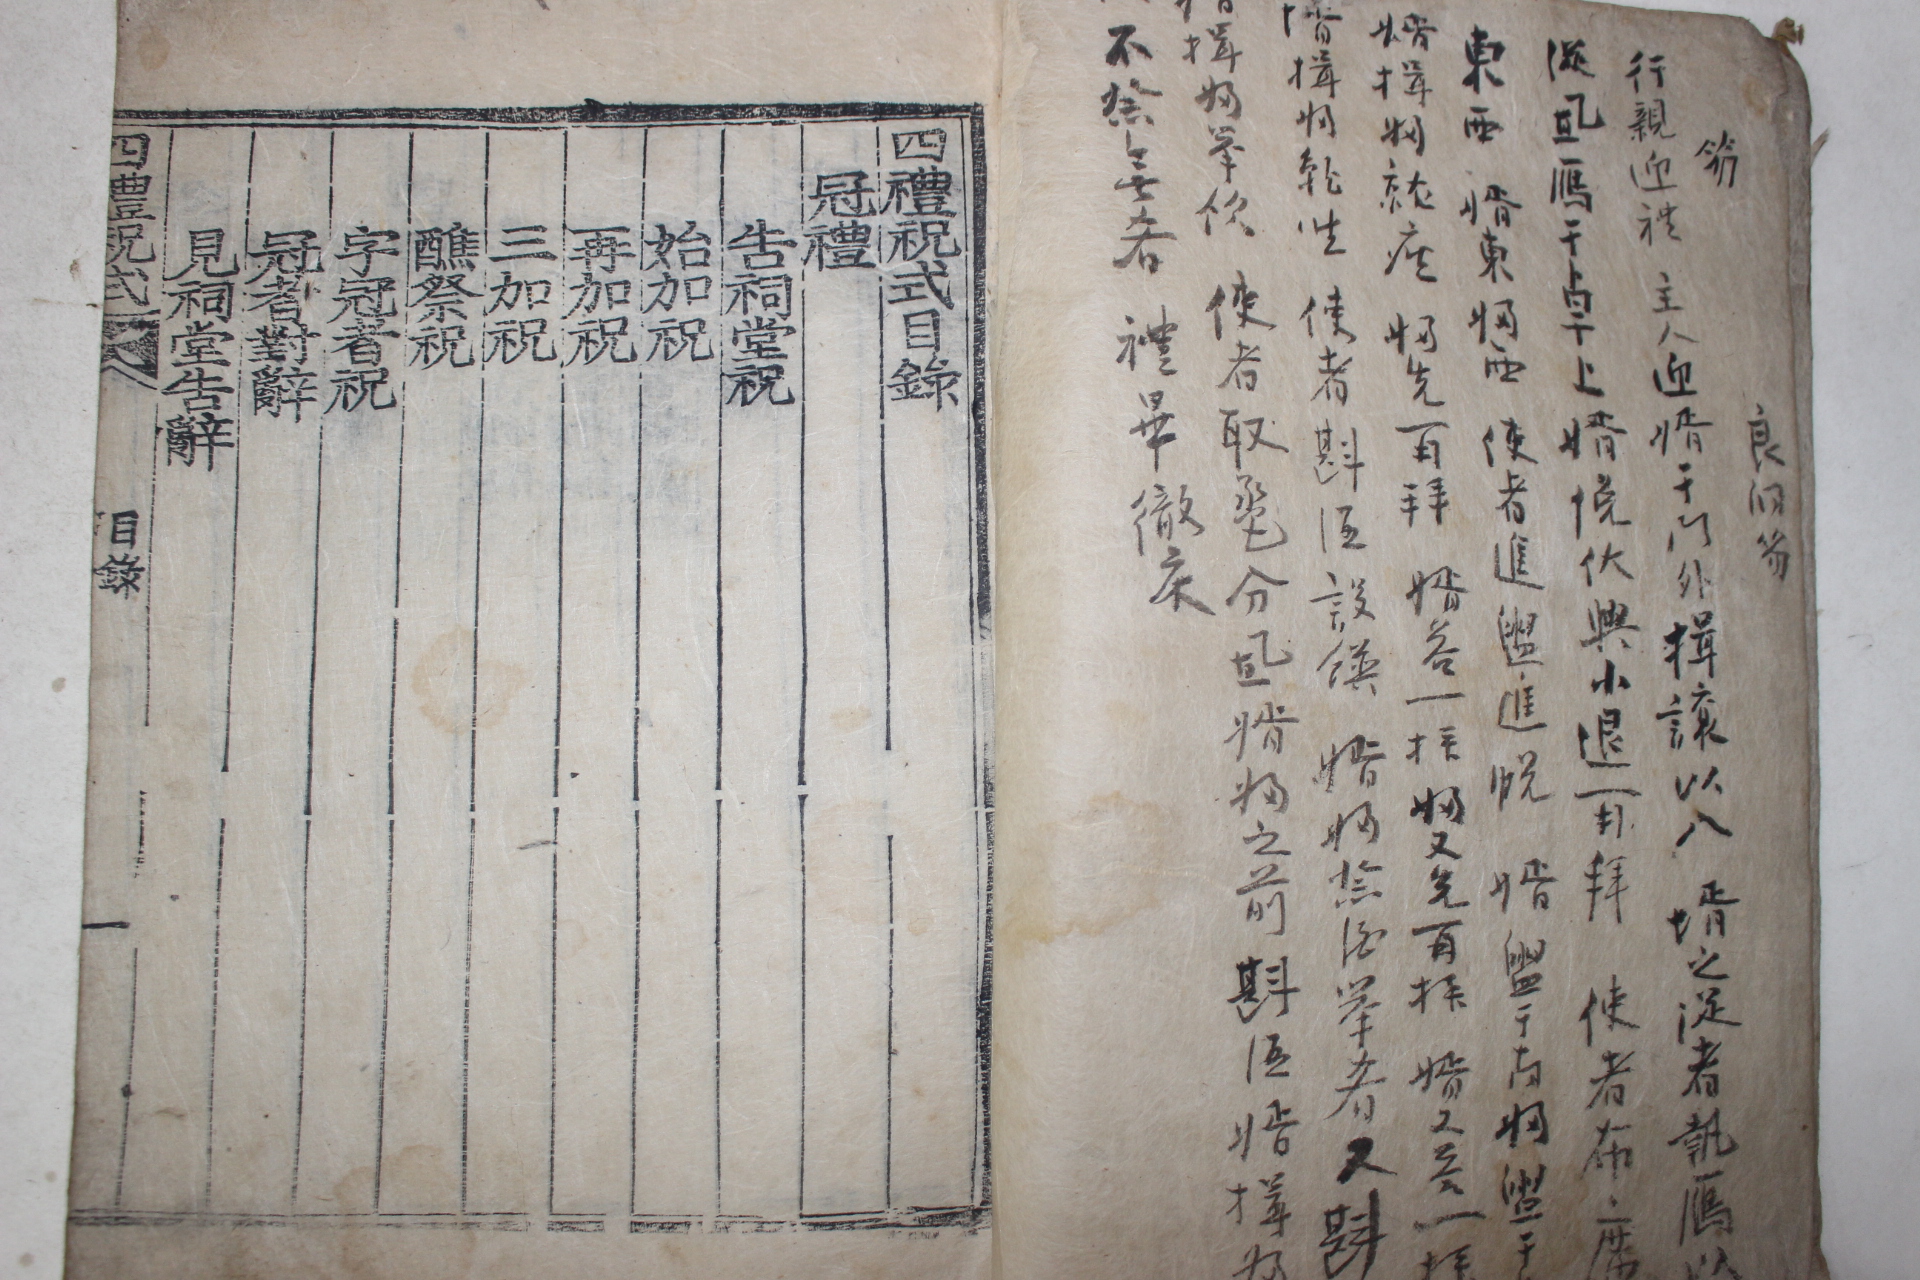 笏
良月笏
行親迎礼 主人迎婿于門外揖讓以入 婿之從者執鴈以
從 置鴈于卓上 婿悅伏興小退再拜 使者布席
東西 婿東婦西 使者進盥進帨 婿盥于南婦盥于
婿揖婦就座 婦先再拜 婿答一拜婦又先再拜 婿又答一拜
婿揖婦就坐 使者斟酒設饌 婿婦祭酒举肴 又斟
婿揖婦举飮 使者取巹分置婿婦之前 斟酒婿揖婦
不祭無肴 禮畢徹床
四禮祝式目錄
冠禮
告祠堂祝
始加祝
再加祝
三加祝
醮祭祝
字冠者祝
冠者對辭
見祠堂告辭
四禮祝式 目錄 一